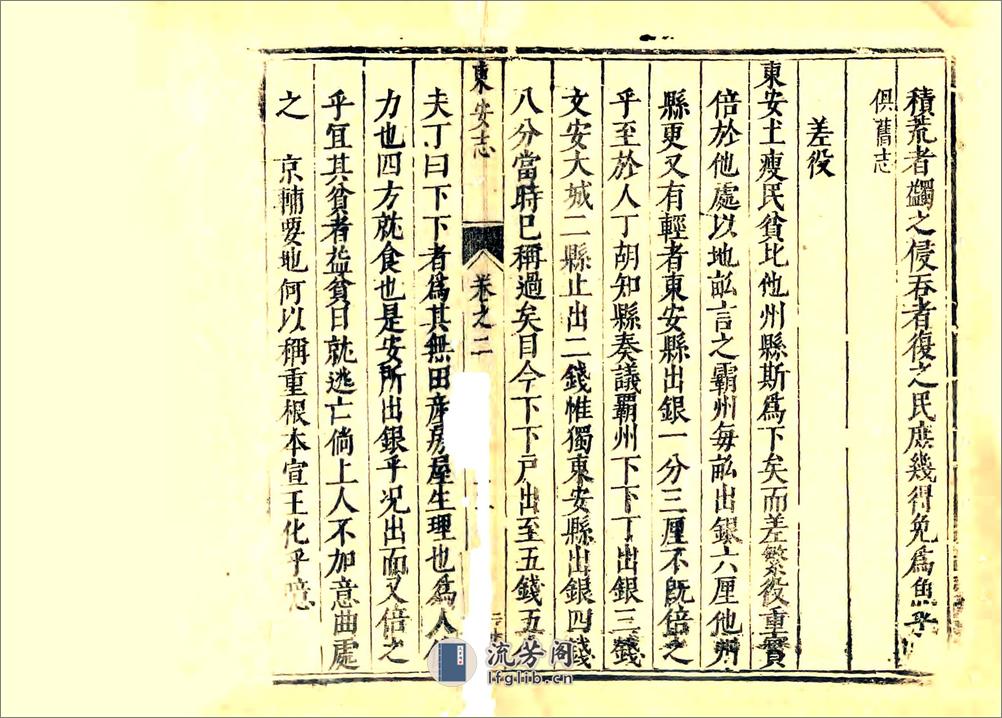 積荒者蠲之侵吞者復之民庶幾得免爲魚
俱舊志
差役
東安土瘦民貧比他州縣斯爲下矣而差繁役重實
倍於他處以地畝言之霸州每畝出銀六厘他州
縣更又有輕者東安縣出銀一分三厘不既倍之
乎至於人丁胡知縣奏議霸州下下丁出銀三錢
文安大城二縣止出二錢惟獨東安縣出銀四錢
八分當時已稱過矣目今下下戶出至五錢五
東安志 卷之二
夫丁曰下下者爲其無田產房屋生理也爲人
力也四方就食也是安所出銀乎况出而又倍之
乎宜其貧者益貧日就逃亡倘上人不加意曲處
之 京輔要地何以稱重根本宣王化乎噫
流芳阁
lfglib.cn